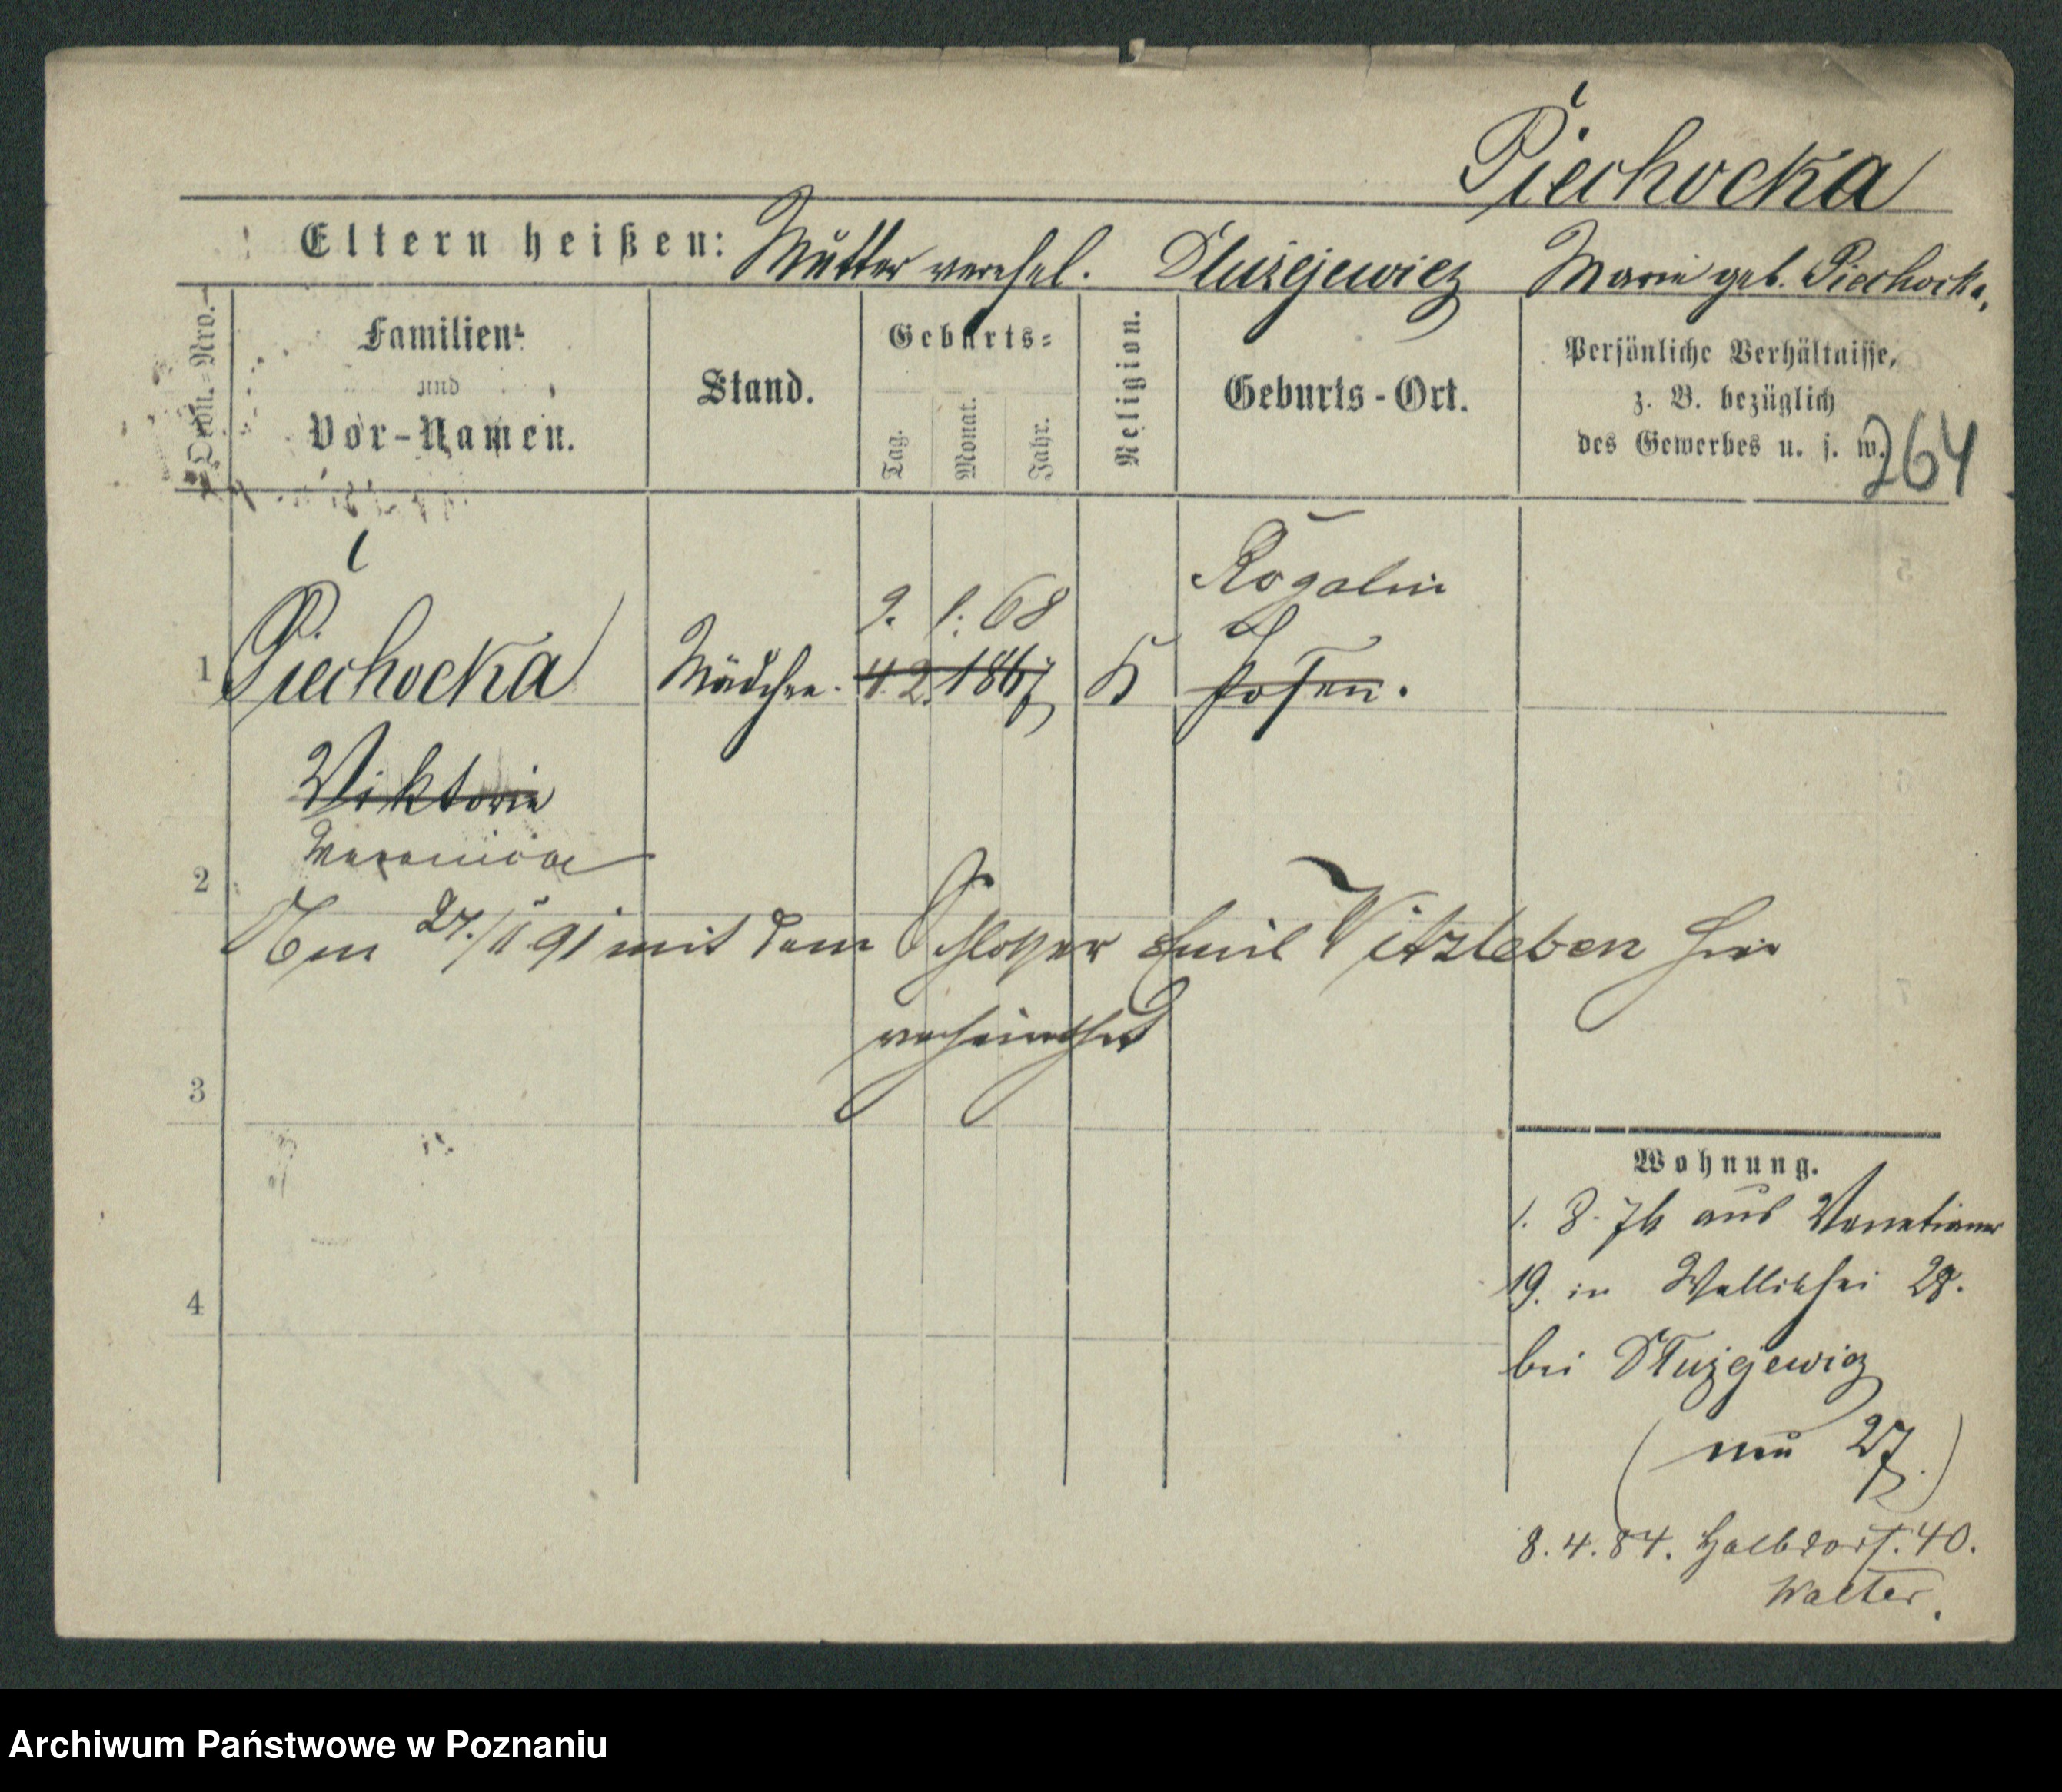 Piechocka
Eltern heißen: Mutter verehel. Dlużejewicz Marie geb. Piechocka,
Ordn.-Nro.
Familien-
und
Vor-Namen.
Stand.
Geburts-
Tag.
Monat.
Jahr.
Religion.
Geburts-Ort.
Persönliche Verhältnisse,
z. B. bezüglich
des Gewerbes u. s. w.
264
Rogalin
9. 1. 68
1 Piechocka Mädchen. 4. 2. 1867 K Posen.
Viktoria
Veronica
2
Am 27./II 91 mit dem Schlosser Emil Vitzleben hier
verheirathet
3
Wohnung.
1. 8. 76 aus Venetianer
19. in Wallischei 28.
4
bei Dłużejewicz
(neu 27.)
8. 4. 84. Halbdorfst. 40.
Walter.
Archiwum Państwowe w Poznaniu